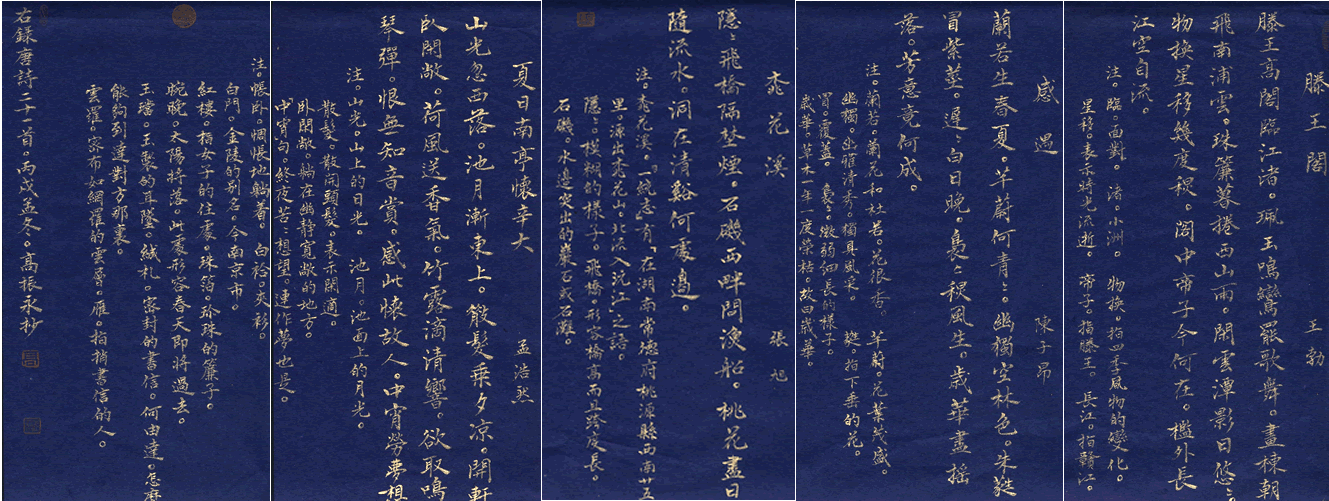 滕王閣 王勃
滕王高閣臨江渚。珮玉鳴鸞罷歌舞。畫棟朝
飛南浦雲。珠簾暮捲西山雨。閑雲潭影日悠々
物換星移幾度秋。閣中帝子今何在。檻外長
江空自流。
注。臨。面對。渚。小洲。物換。指四季風物的變化。
星移。表示時光流逝。帝子。指滕王。長江。指贛江。
感遇 陳子昂
蘭若生春夏。芊蔚何青々。幽獨空林色。朱蕤
冒紫莖。遲々白日晚。嫋々秋風生。歲華盡搖
落。芳意竟何成。
注。蘭若。蘭花和杜若。花很香。芊蔚。花葉茂盛。
幽獨。幽雅清秀。獨具風采。蕤。指下垂的花。
冒。覆蓋。嫋。微弱細長的樣子。
歲華。草木一年一度榮枯。故曰歲華。
桃花溪 張旭
隱々飛橋隔埜煙。石磯西畔問漁船。桃花盡日
隨流水。洞在清谿何處邊。
注。桃花溪。「一統志」有「在湖南常德府桃源縣西南廿五
里。源出桃花山。北流入沅江」之語。
隱。模糊的樣子。飛橋。形容橋高而且跨度長。
石磯。水邊突出的巖石或石灘。
夏日南亭懷辛大 孟浩然
山光忽西落。池月漸東上。散髮乘夕涼。開軒
臥閑敞。荷風送香氣。竹露滴清響。欲取鳴
琴彈。恨無知音賞。感此懷故人。中宵勞夢想
注。山光。山上的日光。池月。池面上的月光。
散髮。散開頭髮。表示閑適。
臥閑敞。躺在幽靜寬敞的地方。
中宵句。終夜苦々想望。連作夢也是。
注。悵臥。惆悵地躺着。白袷。夾衫。
白門。金陵的別名。今南京市。
紅樓。指女子的住處。珠箔。珍珠的簾子。
晼晚。太陽將落。此處形容春天即將過去。
玉璫。玉製的耳墜。緘札。密封的書信。何由達。怎麽
能夠到達對方那裏。
雲羅。密布如網羅的雲層。雁。指捎書信的人。
右錄唐詩二十一首。丙戌孟冬。高振永抄